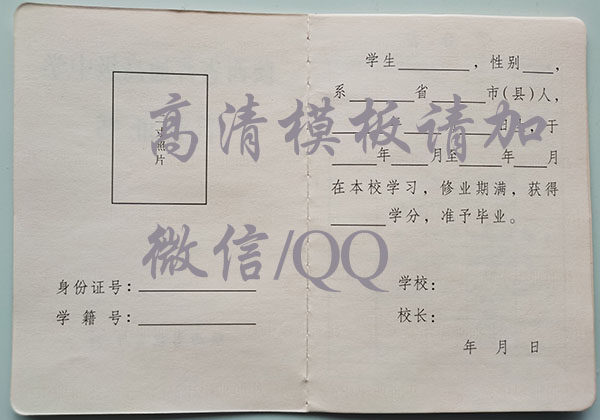 一寸照片
身份证号：
学籍号：
学生 ，性别 ，
系 省 市(县)人，
年 月 日生，于
年 月至 年 月
在本校学习，修业期满，获得
学分，准予毕业。
学校：
校长：
年 月 日
高清模板请加
微信/QQ